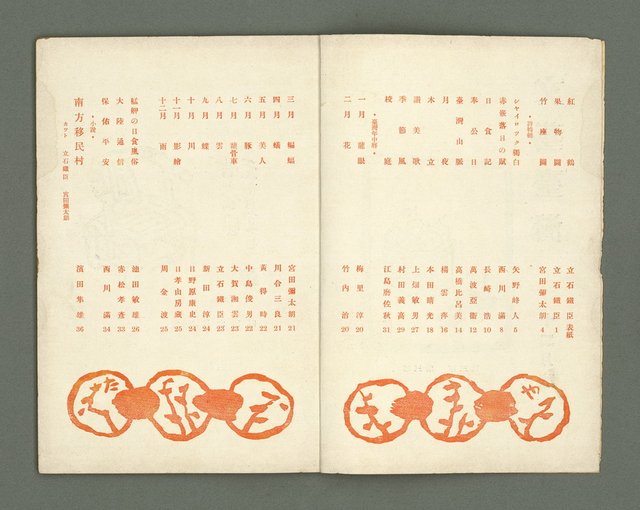 紅鶴 立石鐵臣 表紙
果物圖 立石鐵臣 1
竹座圖 宮田彌太朗 4
・詩特輯・
シャイロツク獨白 矢野峰人 5
赤嵌落日の賦 西川滿 8
日食記 長崎浩 10
奉公日 萬波亞衞 12
臺灣山脈 高橋比呂美 14
月夜 楊雲萍 16
木立 本田晴光 18
讃美歌 上畑壽男 27
季節風 村田義高 29
後庭 江島磨佐秋 31
・臺灣年中暦・
一月 龍眼 梅里淳 20
二月 花 竹內治 20
三月 蝙蝠 宮田彌太朗 21
四月 蟻 川合三良 21
五月 美人 黃得時 22
六月 豚 中島俊男 22
七月 龍骨車 大賀湘雲 23
八月 雲 立石鐵臣 23
九月 蝶 新田淳 24
十月 川 日野原康史 24
十一月 影繪 日孝山房處 25
十二月 雨 周金波 25
艋舺の日食風俗 池田敏雄 26
大陸通信 赤松孝彥 33
保佑平安 西川滿 34
・小說・
南方移民村 濱田隼雄 36
カツト 立石鐵臣 宮田彌太朗